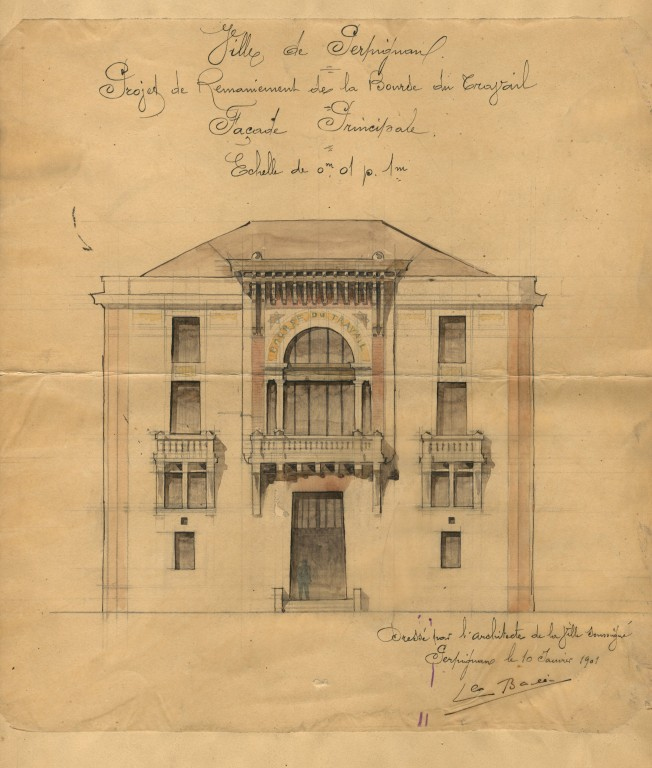 Ville de Perpignan
Projet de Remaniement de la Bourse du Travail
Façade Principale.
Echelle de 0m 01 p. 1m
BOURSE DU TRAVAIL
Dressé par l'architecte de la Ville soussigné
Perpignan le 10 Janvier 1901
Leo